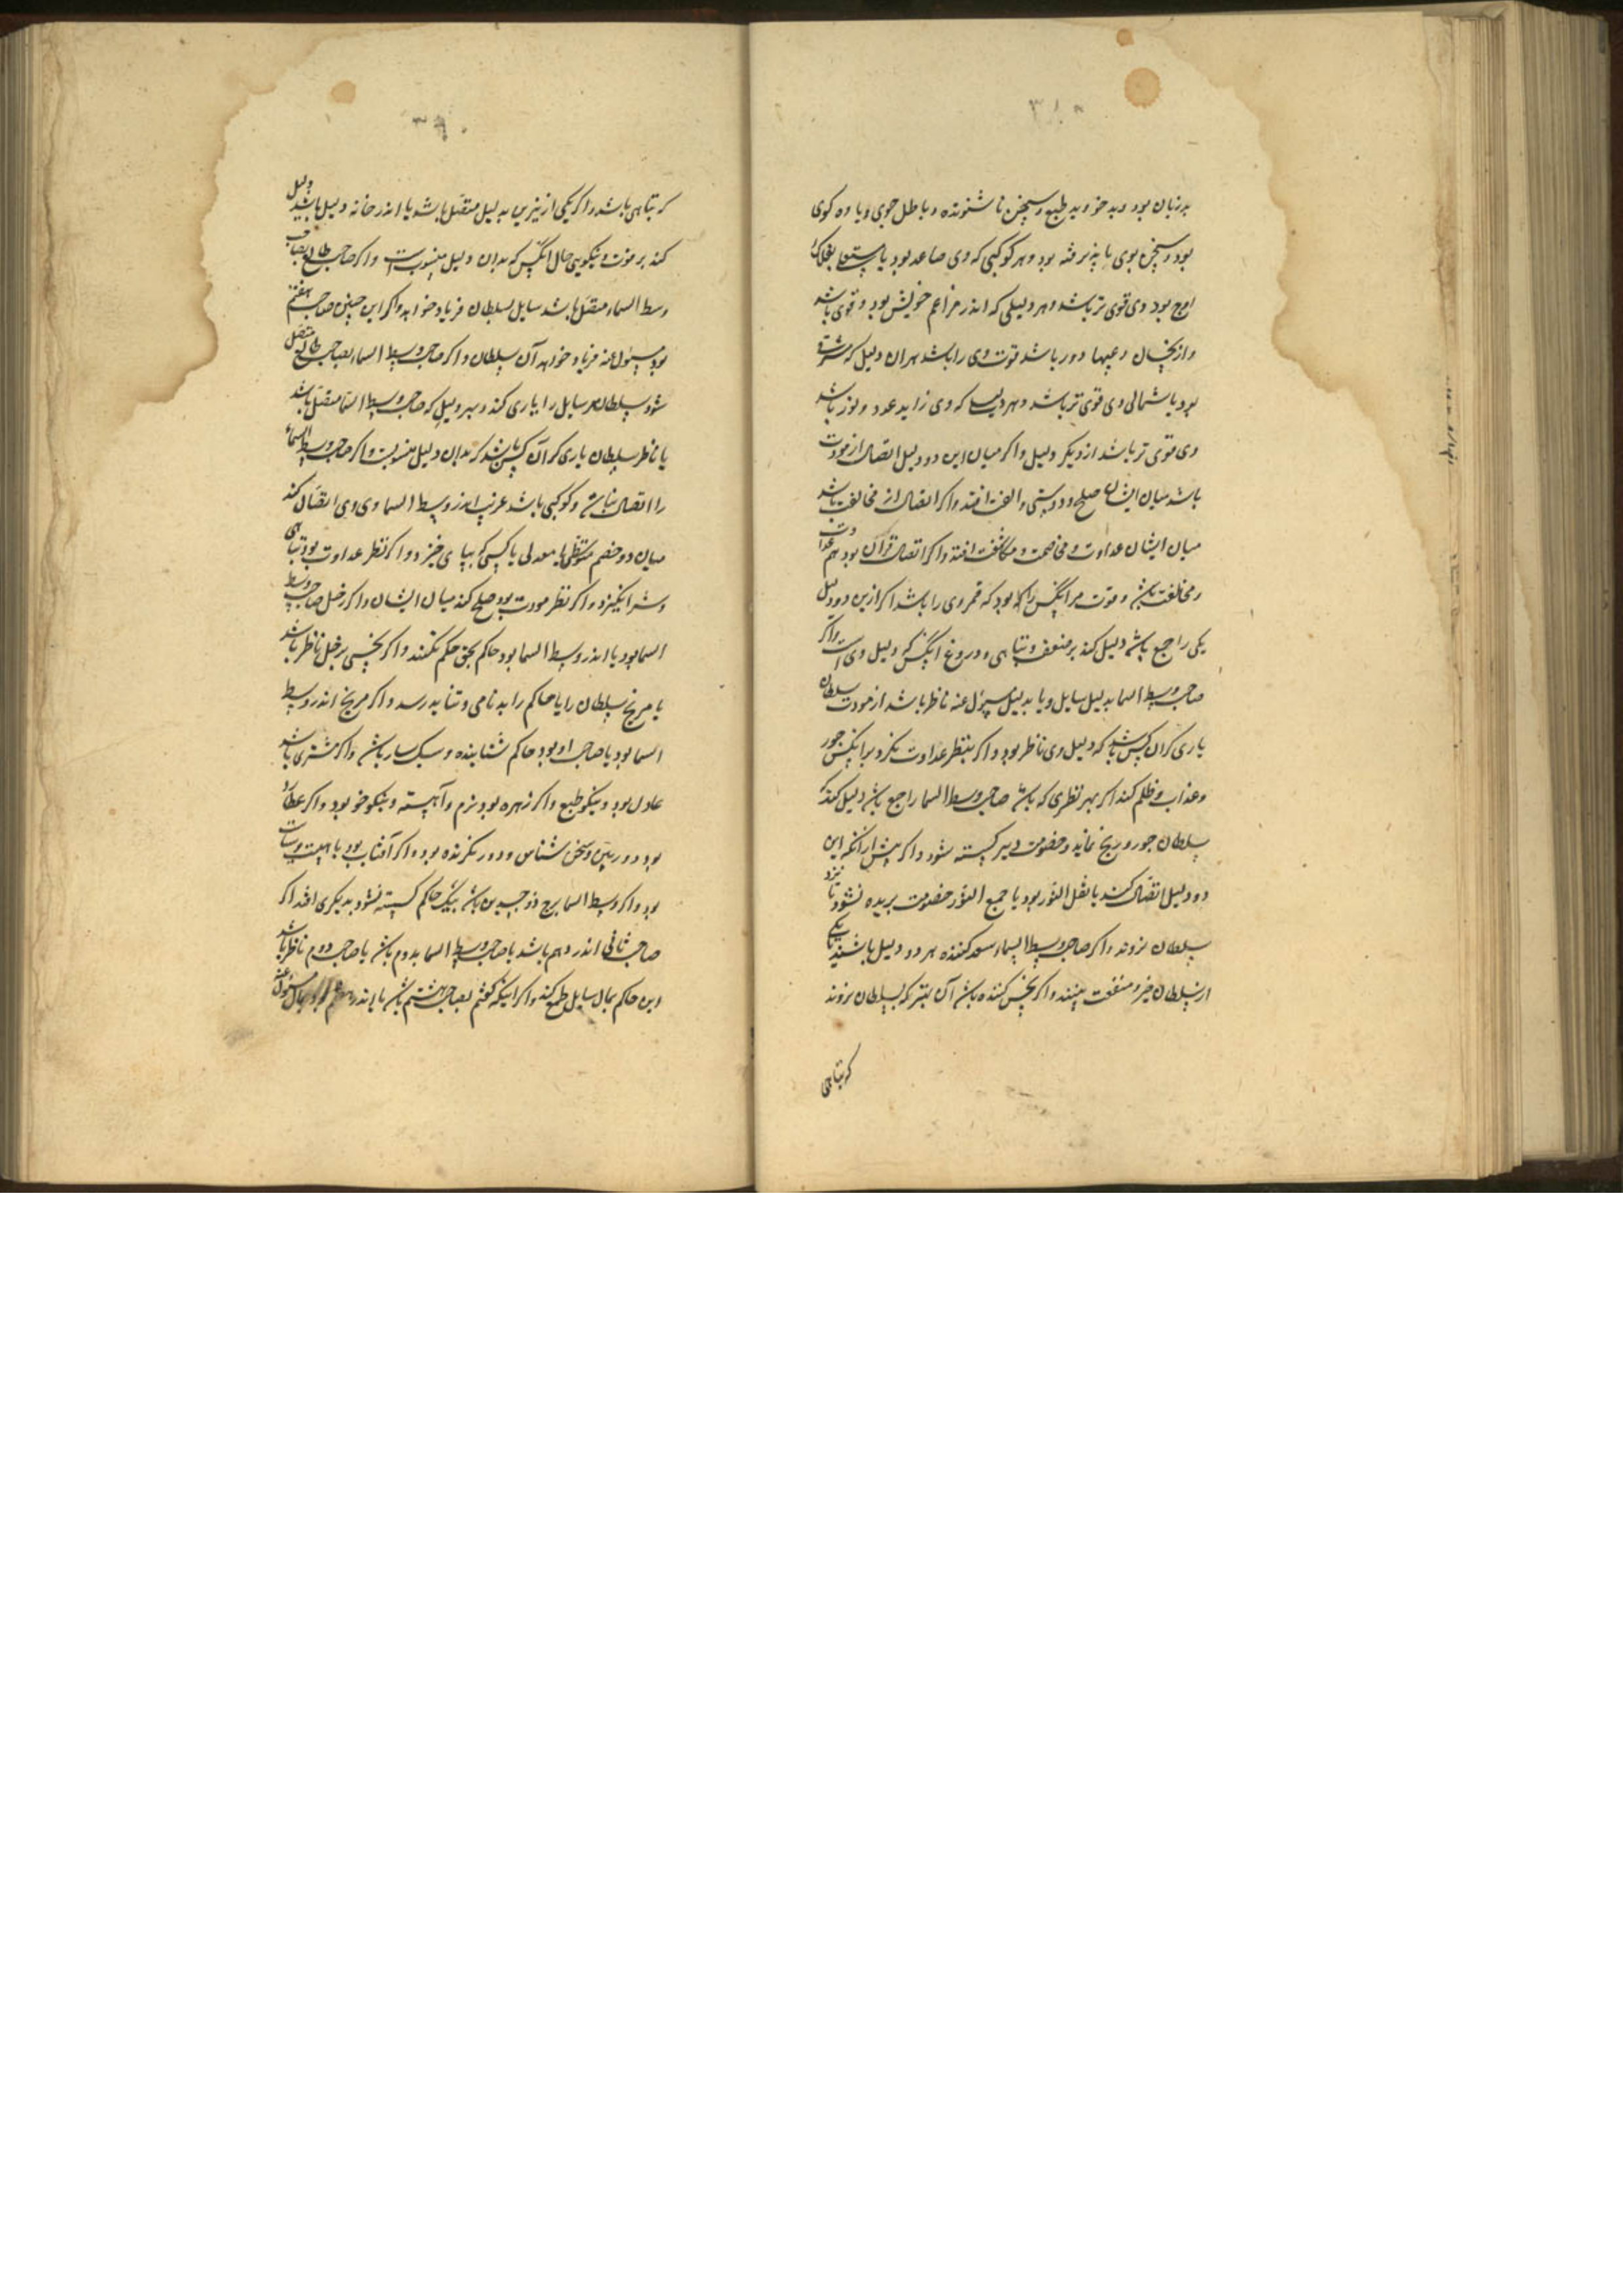 بدزبان بود و بدخو و بد طبع و سخن ناشنونده و باطل جوی و یاوه کوی
بود و سخن بوی ناپذیرفته بود و هر کوکبی که وی صاعد بود یا مستعلی بفلک
اوج بود وی قوی تر باشد و هر دلیلی که اندر مزاعم خویش بود و قوی باشد
و از نحسان و عیبها دور باشد قوت وی را باشد بران دلیل که
بود یا شمالی وی قوی تر باشد و هر دلیل که وی زاید عدد و نور باشد
وی قوی تر باشد از دیکر دلیل و اکر میان این دو دلیل اتصال از مودت
باشد میان ایشان صلح و دوستی و الفت افتد و اکر اتصال از مخالفت باشد
میان ایشان عداوت و مخاصمت و مکاشفت افتد و اکر اتصال قران بود هم عداوت
و مخالفت باشد و قوت مر انکس را بود که قمر وی را باشد اکر ازین دو دلیل
یکی راجع باشد دلیل کند بر ضعف و تباهی و دروغ انکس که دلیل وی است و اکر
صاحب وسط السما بدلیل سایل و یا بدلیل مسؤل عنه ناظر باشد از مودت سلطان
یاری کر آن کس باشد که دلیل وی ناظر بود و اکر بنظر عداوت نکرد بر انکس جور
و عذاب و ظلم کند اکر بهر نظری که باشد صاحب وسط السما راجع باشد دلیل کند که
سلطان جور و رنج نماید و خصومت دیر کسسته شود و اکر پیش از انکه این
دو دلیل اتصال کنند یا نقل النور بود یا جمع النور خصومت بریده نشود تا نزد
سلطان نروند و اکر صاحب وسط السماء سعد کننده هر دو دلیل باشند
از سلطان خیر و منفعت بینند و اکر نحس کننده باشد آن بتر که بسلطان نروند
که تباهی
که تباهی باشد و اکر یکی از نیرین بدلیل متصل باشد یا اندر خانه دلیل باشد دلیل
کند بر قوت و نیکویی حال انکس که بدان دلیل منسوبست و اکر صاحب طالع بصاحب
وسط السماء متصل باشد سایل بسلطان فریاد خواهد و اکر این چنین صاحب هفتم
بود مسؤل عنه فریاد خواهد آن سلطان و اکر صاحب وسط السماء بصاحب طالع متصل
شود سلطان مر سایل را یاری کند و بهر دلیل که صاحب وسط السما متصل باشد
یا ناظر سلطان یاری کر آن کس باشد که بدان دلیل منسوبست و اکر صاحب وسط السماء
را اتصال نباشد و کوکبی باشد غریب اندر وسط السما و وی اتصال کند
میان دو خصم متوسطی یا معدلی یا کسی که بپای خیزد و اکر نظر عداوت بود تباهی
و شر انکیزد و اکر نظر مودت بود صلح کند میان ایشان و اکر زحل صاحب وسط
السما بود یا اندر وسط السما بود حاکم بحق حکم نکند و اکر نحسی بزحل ناظر باشد
یا مریخ سلطان را یا حاکم را بدنامی و رسد و اکر مریخ اندر وسط
السما بود یا صاحب او بود حاکم شتابنده و سبکسار باشد و اکر مشتری باشد
عادل بود و نیکو طبع و اکر زهره بود نرم و آهسته و نیکو خو بود و اکر عطارد
بود دوربین و سخن شناس و دور نکرنده بود و اکر آفتاب بود با هیبت و سیاست
بود و اکر وسط السما برج ذو جسدین باشد بیک حاکم کسسته نشود بدیکری افتد اکر
صاحب ثانی اندر دهم باشد یا صاحب وسط السما بدوم باشد یا صاحب دوم ناظر باشد
این حاکم بمال سایل طمع کند و اکر اینکه کفتم بصاحب هشتم باشد یا اندر هشتم بود بمال مسؤل عنه